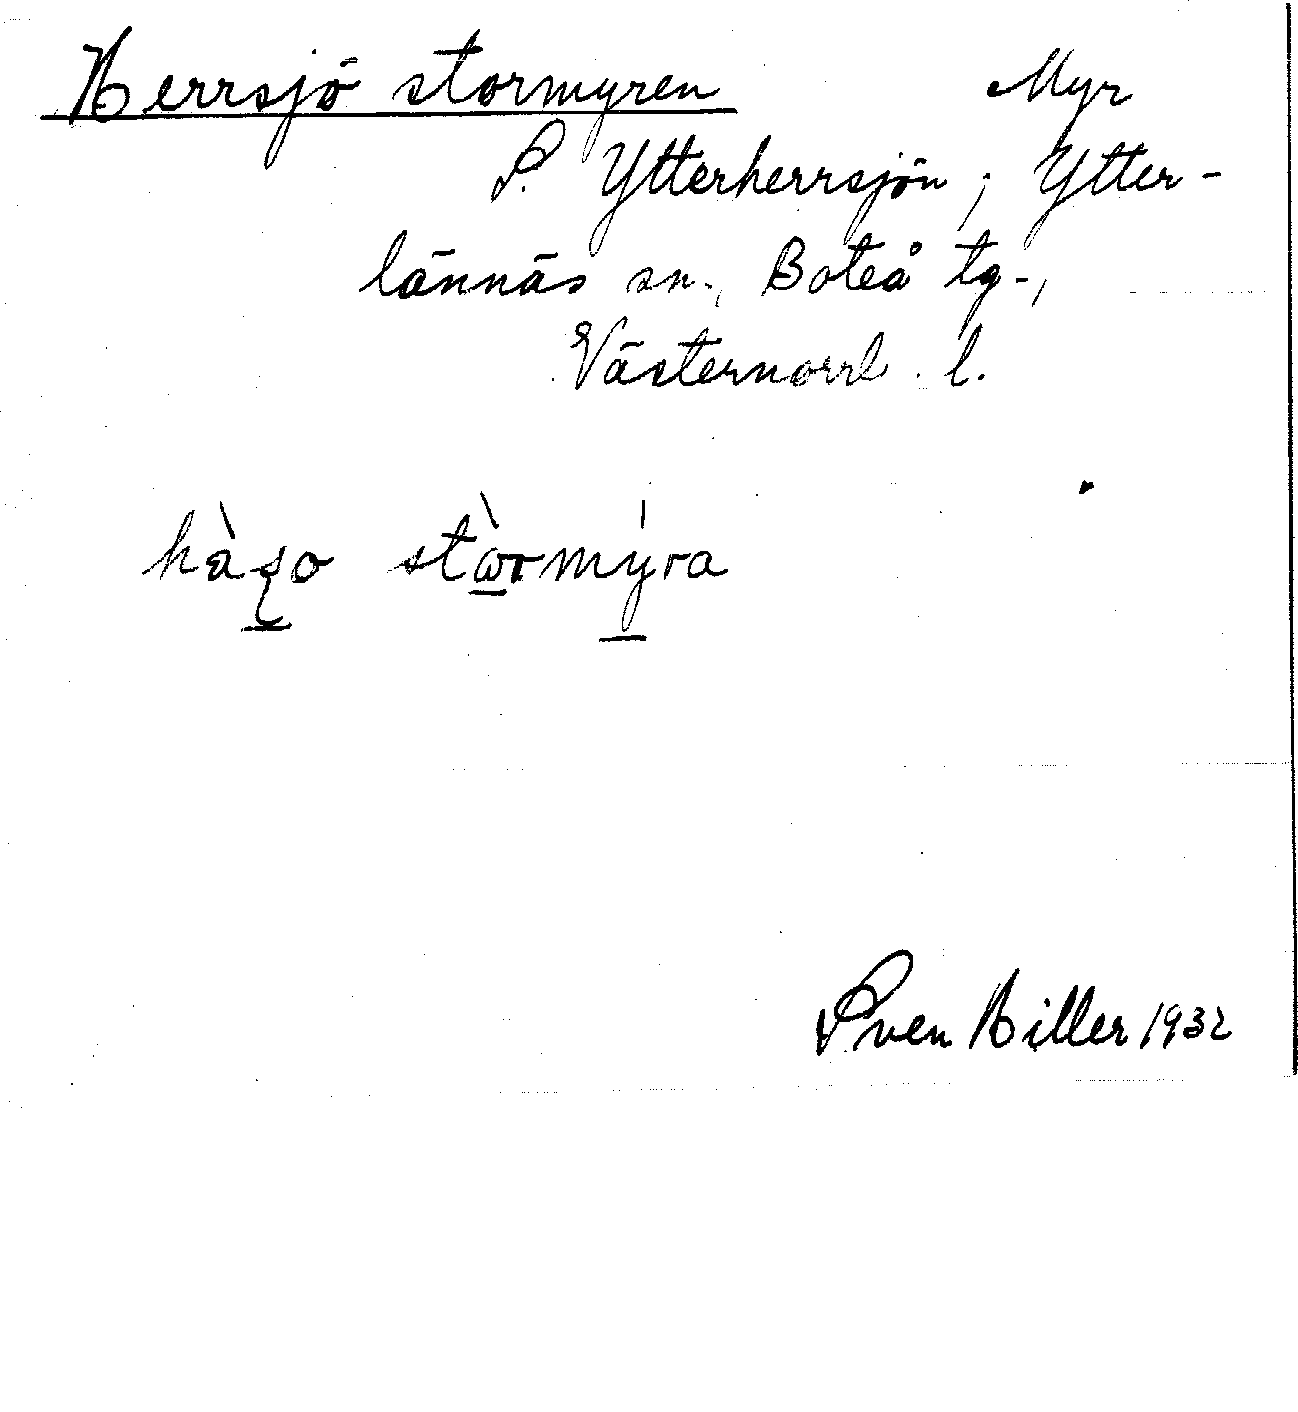 Herrsjö stormyren Myr
S. Ytterherrsjön; Ytter-
lännäs sn., Boteå tg.,
Västernorrl. l.
hàʂo stòrmýra
Sven Hiller 1932